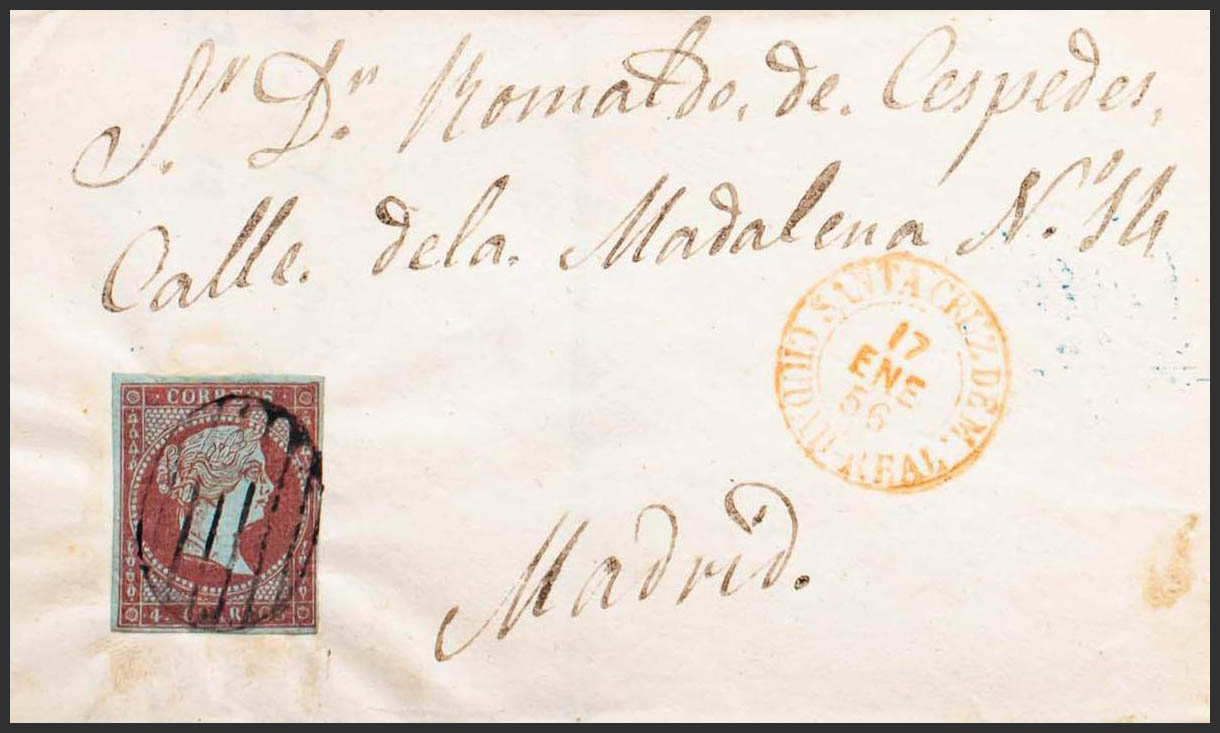 S.r D.n Romaldo. de. Cespedes,
Calle. dela. Madalena N.º 14
SANTA CRUZ DE M.
17
ENE
56
CIUDAD-REAL
CORREOS
4. CUARTOS
Madrid.